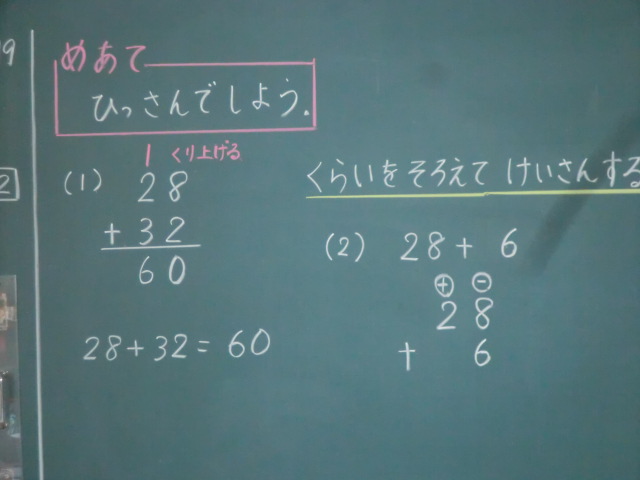 9
めあて
ひっさんでしよう.
2
1 くり上げる
(1) 28
+ 32
60
28+32=60
くらいをそろえて けいさんする
(2) 28+ 6
⊕ ⊖
28
+ 6